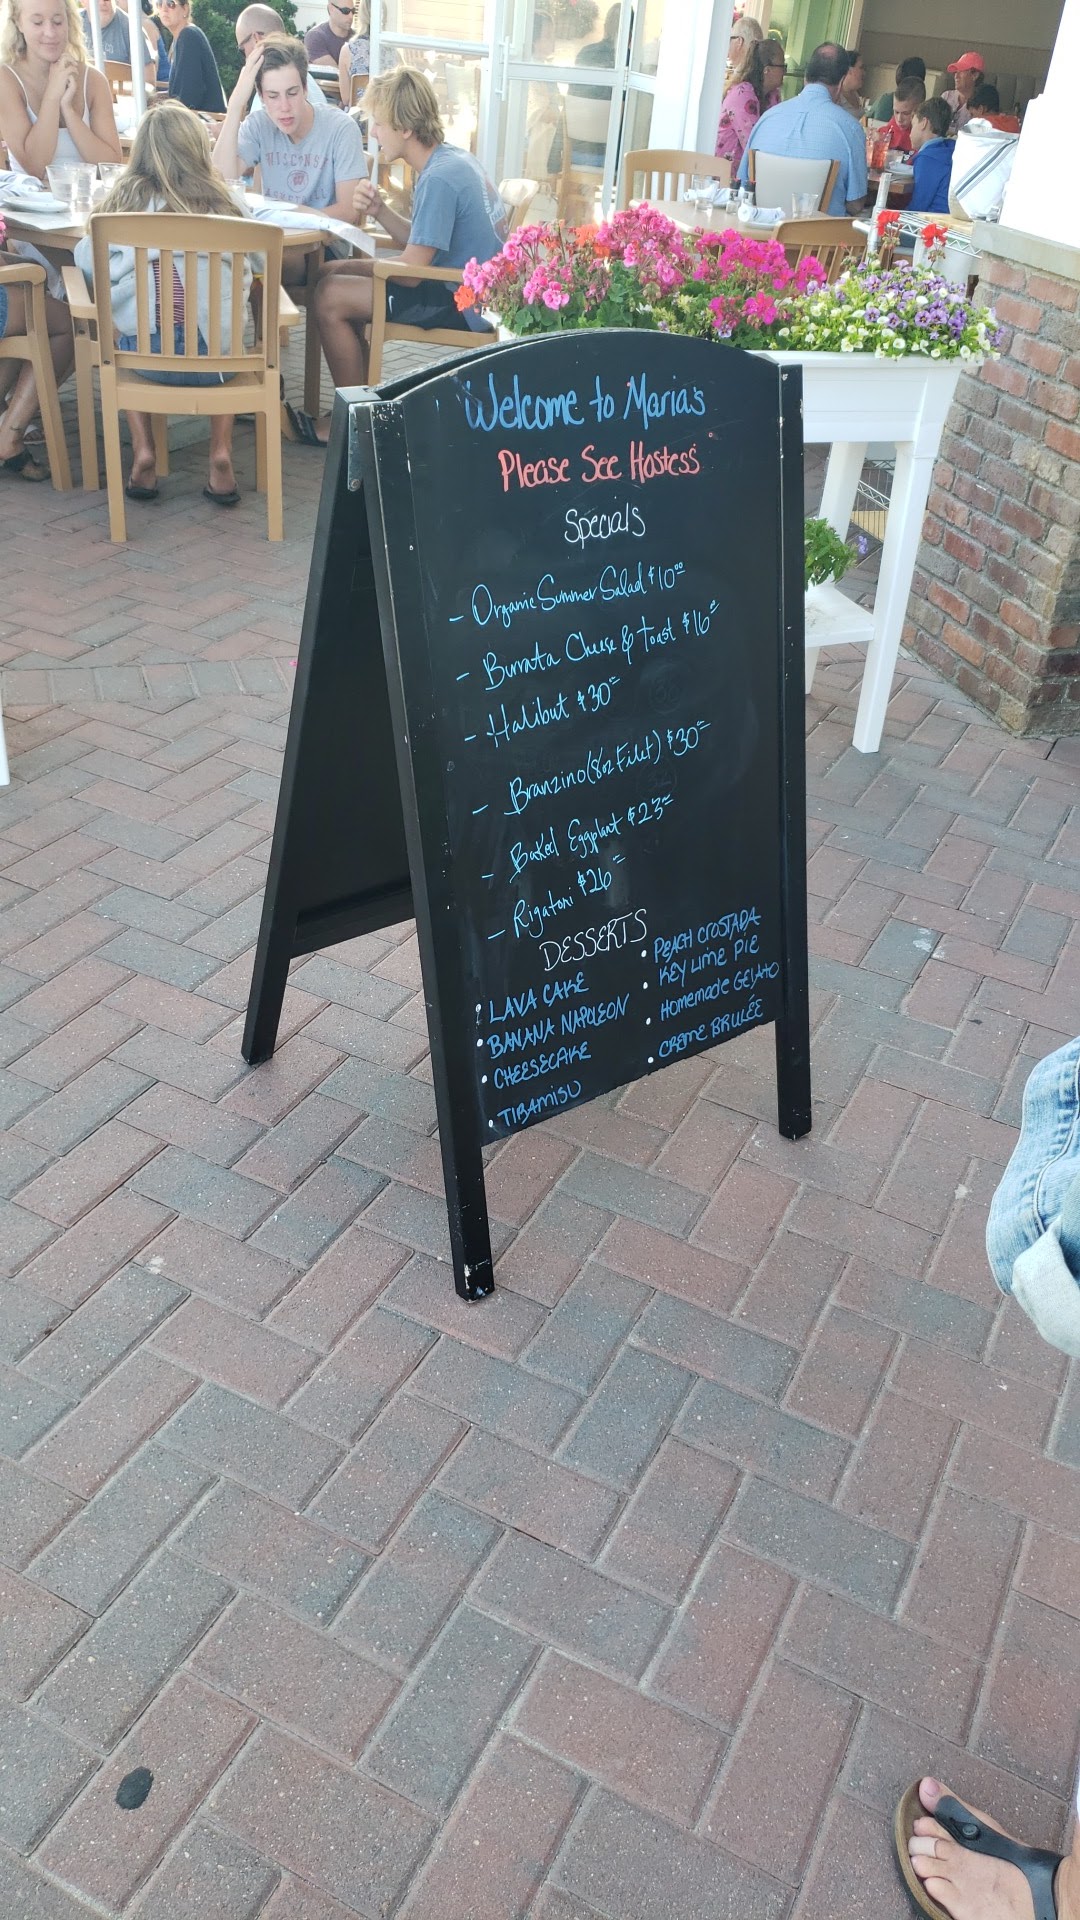 Welcome to Maria's
Please See Hostess
Specials
- Organic Summer Salad $10.00
- Burrata Cheese & toast $16
- Halibut $30
- Branzino (8oz Filet) $30
- Baked Eggplant $23
- Rigatoni $26
DESSERTS
• LAVA CAKE
• BANANA NAPOLEON
• CHEESECAKE
• TIRAMISU
• PEACH CROSTADA
• KEY LIME PIE
• Homemade GELATO
• CREME BRULÉE
WISCONSIN